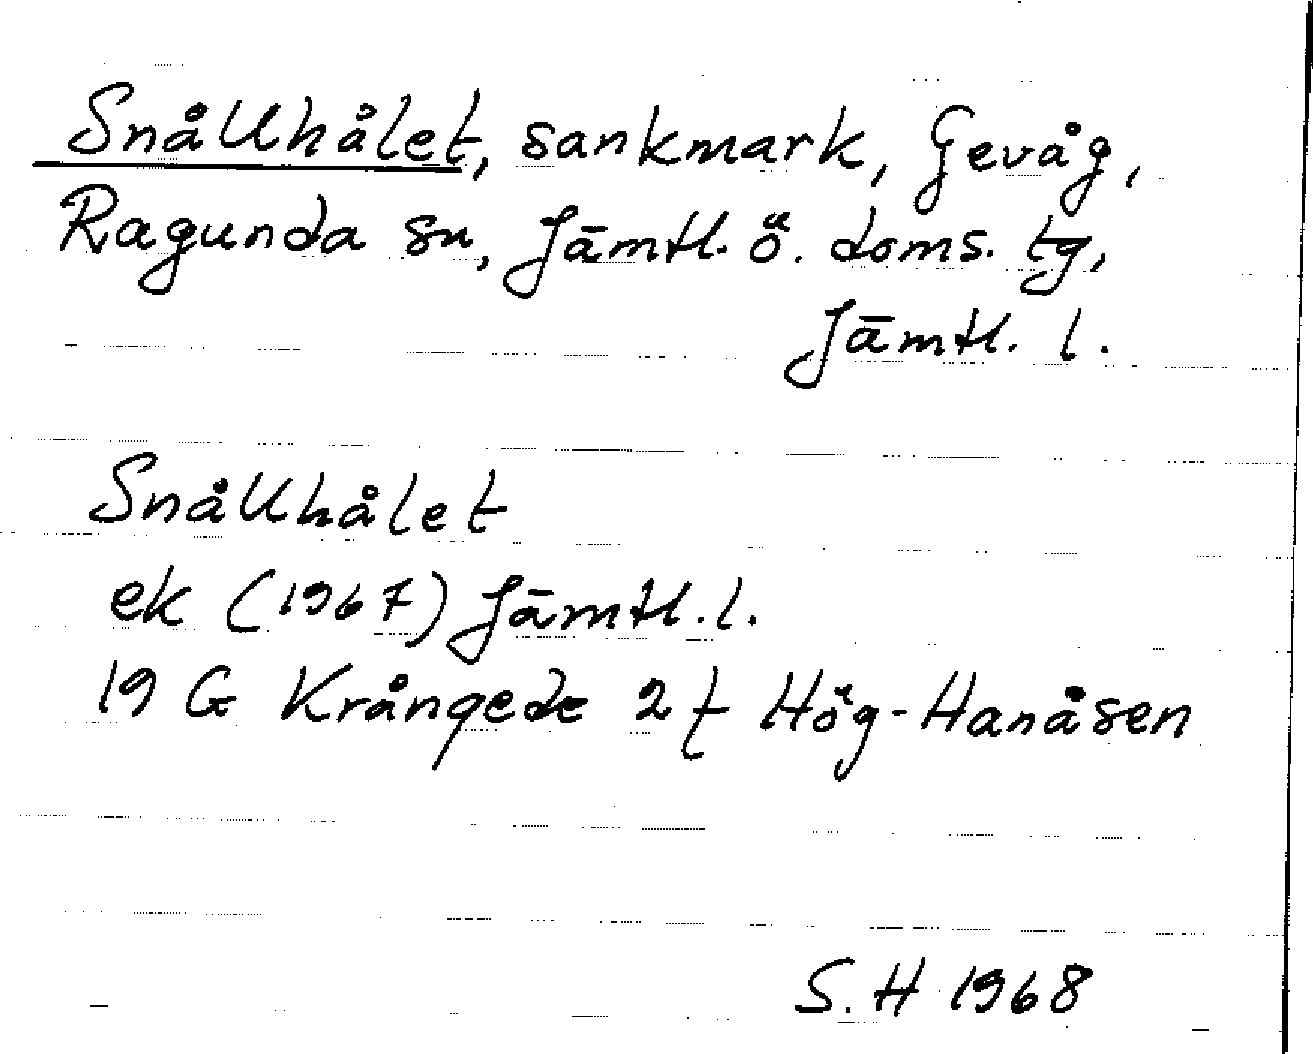 Snållhålet, sankmark, Gevåg,
Ragunda sn, Jämtl. ö. doms. tg,
Jämtl. l.
Snållhålet
ek (1967) Jämtl. l.
19 G Krångede 2 f Hög-Hanåsen
S. H 1968